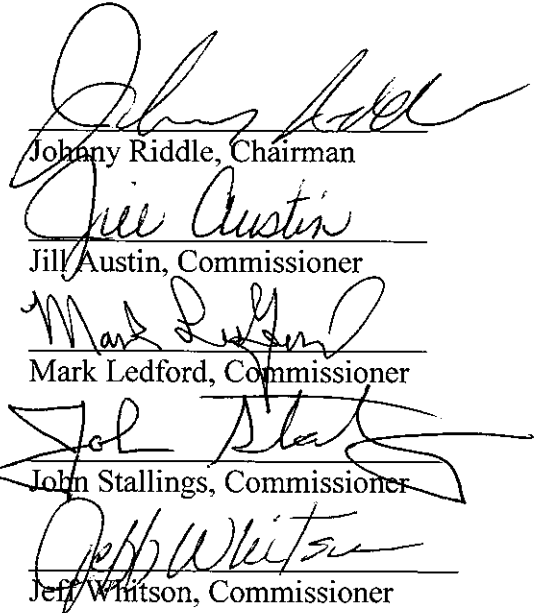 Johnny Riddle
Johnny Riddle, Chairman
Jill Austin
Jill Austin, Commissioner
Mark Ledford
Mark Ledford, Commissioner
John Stallings
John Stallings, Commissioner
Jeff Whitson
Jeff Whitson, Commissioner